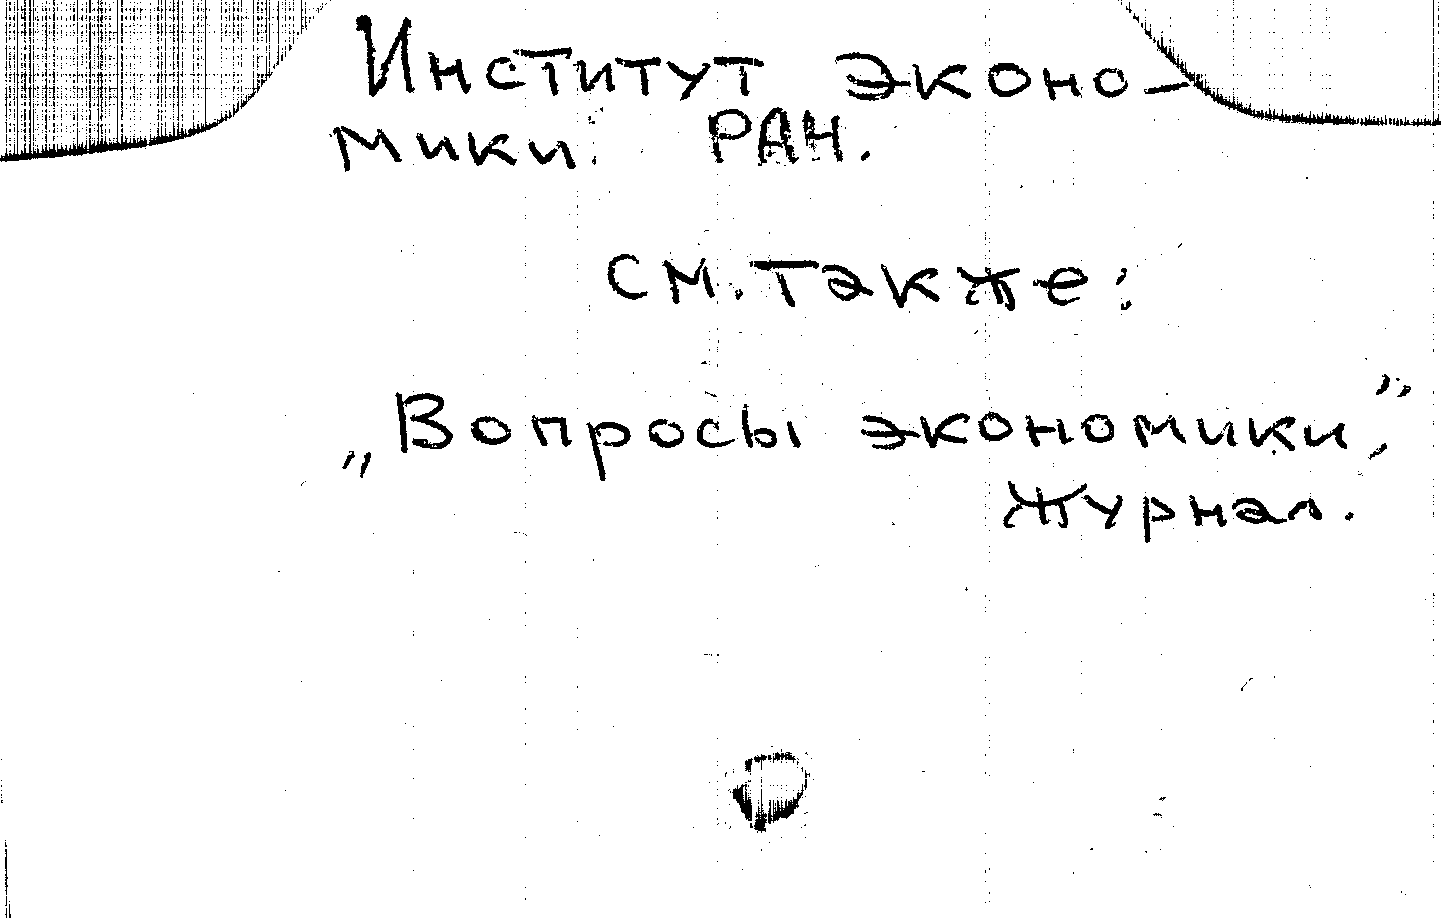 Институт эконо-
мики. РАН.
см. также:
„Вопросы экономики”,
журнал.